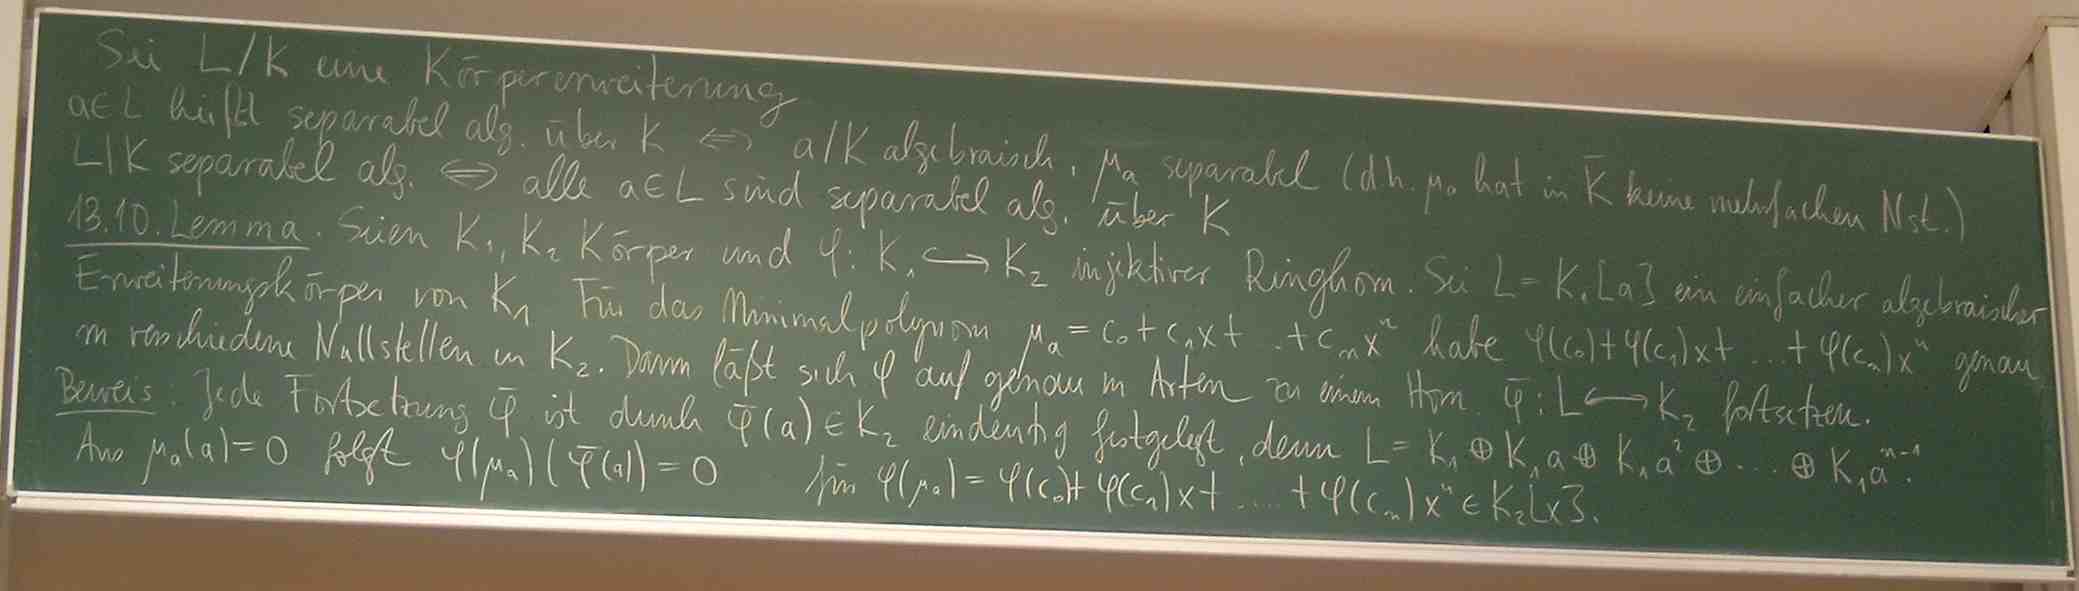 Sei L/K eine Körpererweiterung
a∈L heißt separabel alg. über K ⇔ a/K algebraisch, μₐ separabel (d.h. μₐ hat in K̄ keine mehrfachen Nst.)
L/K separabel alg. ⇔ alle a∈L sind separabel alg. über K
13.10. Lemma. Seien K₁, K₂ Körper und φ: K₁ ↪ K₂ injektiver Ringhom. Sei L = K₁[a] ein einfacher algebraischer
Erweiterungskörper von K₁ Für das Minimalpolynom μₐ = c₀ + c₁x + .. + cₙxⁿ habe φ(c₀) + φ(c₁)x + ... + φ(cₙ)xⁿ genau
m verschiedene Nullstellen in K₂. Dann läßt sich φ auf genau m Arten zu einem Hom. φ̄: L ↪ K₂ fortsetzen.
Beweis: Jede Fortsetzung φ̄ ist durch φ̄(a) ∈ K₂ eindeutig festgelegt, denn L = K₁ ⊕ K₁a ⊕ K₁a² ⊕ ... ⊕ K₁aⁿ⁻¹.
Aus μₐ(a) = 0 folgt φ(μₐ)(φ̄(a)) = 0 für φ(μₐ) = φ(c₀) + φ(c₁)x + .... + φ(cₙ)xⁿ ∈ K₂[x].